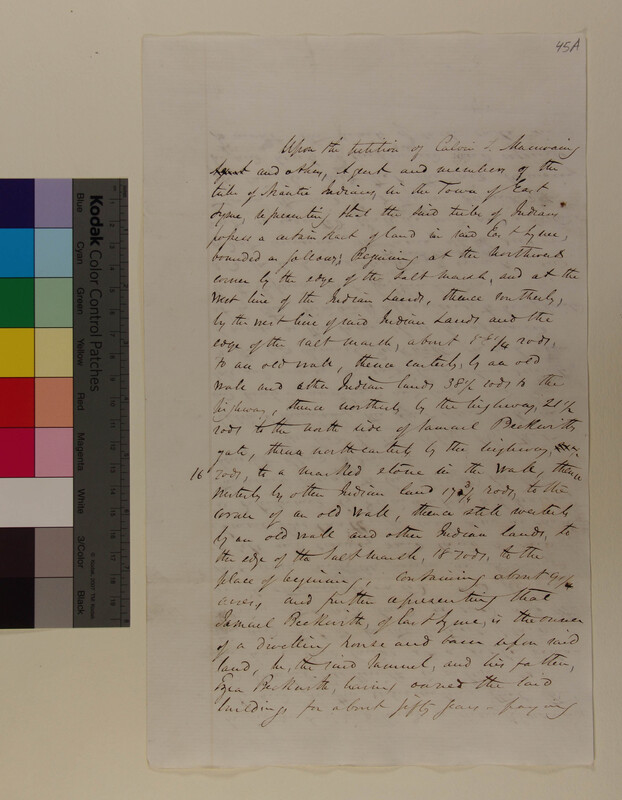 45A
Upon the petition of Calvin S. Manwaring
and others, Agent and members of the
tribe of Niantic Indians, in the Town of East
Lyme, representing that the said tribe of Indians
possess a certain tract of land in said East Lyme,
bounded as follows; Beginning at the Northwest
corner by the edge of the Salt marsh, and at the
West line of the Indian Lands, thence southerly,
by the west line of said Indian Lands and the
edge of the salt marsh, about rods,
to an old wall, thence easterly, by an old
wall and other Indian lands 38 1/2 rods to the
highway, thence northerly by the highway, 21 1/2
rods to the north side of Samuel Beckwiths
gate, thence northeasterly by the highway,
16 rods, to a marked stone in the wall, thence
westerly by other Indian land 17 rods, to the
corner of an old wall, thence still westerly
by an old wall and other Indian lands, to
the edge of the Salt marsh, 18 rods, to the
place of beginning, containing about
acres, and further representing that
Samuel Beckwith, of East Lyme, is the owner
of a dwelling house and barn upon said
land, he, the said Samuel, and his father,
Ezra Beckwith, having owned the said
buildings for about fifty years - paying
Kodak
Color Control Patches
Blue
Cyan
Green
Yellow
Red
Magenta
White
3/Color
Black